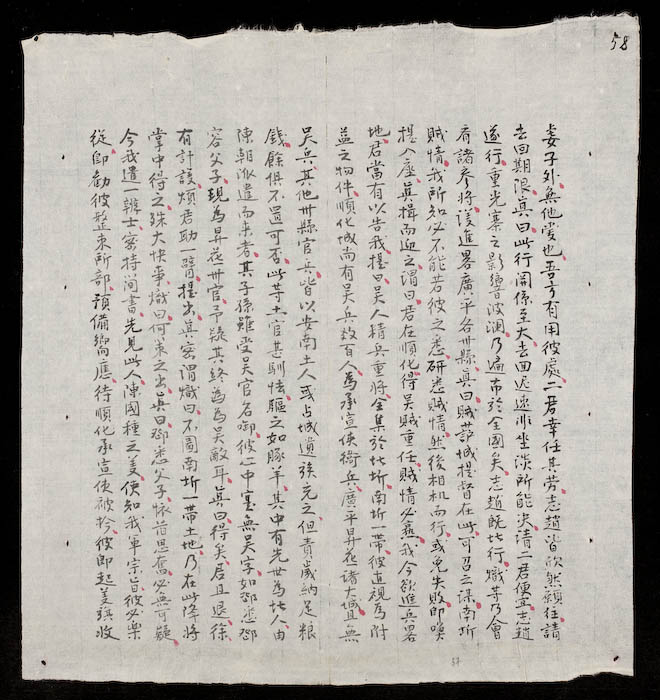 58
委子外無他愛也吾方有用彼處二君幸任其勞志趙皆欣然願往請
去回期限真曰此行関係至大去回遲速非坐談所能決請二君便宜志趙
遂行重光寨之影響波瀾乃遍布於全國矣志趙既北行熾等乃會
有諸參將議進畧廣平各州縣真曰賊護城提督在此可召之詠南圻
賊情我所知必不能若彼之悉研悉賊情然後相机而行或免失敗即喚
提入座真揖而迎之謂曰君在順化得吳賊重任賊情必熟我今欲進兵畧
地君當有以告我提曰吳人精兵重將全集於北圻南圻一帶彼直視為附
益之物件順化城尚有吳兵数百人為承宣使衛兵廣平昇花諸大城且無
吳兵其他州縣官兵皆以安南土人或占城遺族充之但責歲納足粮
錢餘俱不置可否此等土官甚馴怯驅之如豚羊其中有先世為北人由
陳朝派遣而来者其子孫雖受吳官名啣彼心中寔無吳字如鄧悉鄧
容父子現為昇花州官予疑其終為吳敵耳真曰得矣君且退徐
有計設煩君助一臂提出真密謂熾曰不圖南圻一帶土地乃在此降將
掌中得之殊大快事熾曰何策之出真曰鄧悉父子怵旧思奮必無可疑
今我遣一辨士密持簡書先見此人陳國種之羙使知我軍宗旨彼必樂
從即勸彼整束所部預備嚮應待順化承宣使被衿彼即起義旗收
37